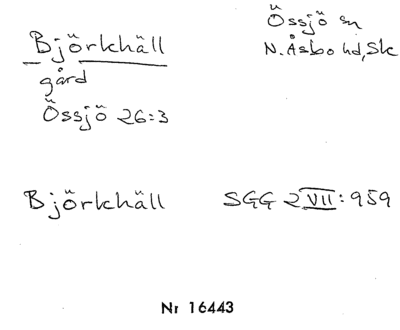 Björkhäll
gård
Össjö 26:3
Össjö sn
N. Åsbo hd, Sk
Björkhäll
SGG 2 VII: 959
Nr 16443